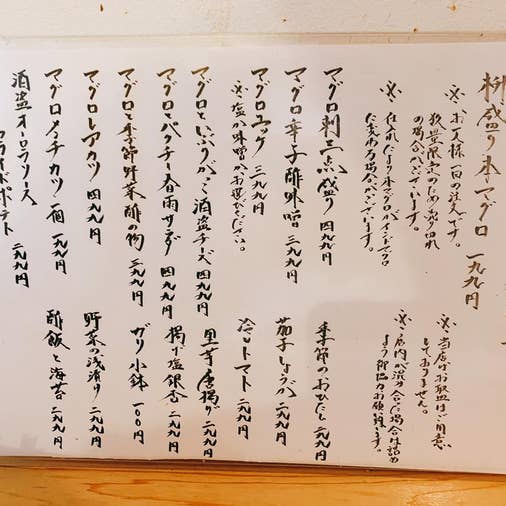 桝盛り本マグロ 一九九円
※お一人様一回の注文です。
数量限定のため売り切れ
の場合がございます。
※仕入れにより本マグロがインドマグロ
に変わる場合がございます。
※当店はお取皿はご用意
しておりません。
※店内が混み合った場合は詰め
より御協力お願い致します。
マグロ刺三点盛り 四九九円
マグロ辛子酢味噌 三九九円
マグロユッケ 三九九円
※塩か味噌かお選びください。
マグロといぶりがっこ酒盗チーズ 四九九円
マグロとパクチー春雨サラダ 四九九円
マグロと季節野菜酢の物 三九九円
マグロレアカツ 四九九円
マグロメンチカツ一個 一九九円
酒盗オーロラソース
フライドポテト 二九九円
季節のおひたし 二九九円
茄子しょうが 二九九円
冷しトマト 二九九円
里芋唐揚げ 二九九円
揚げ銀杏 二九九円
ガリ小鉢 一〇〇円
野菜の浅漬け 二九九円
酢飯と海苔 二九九円